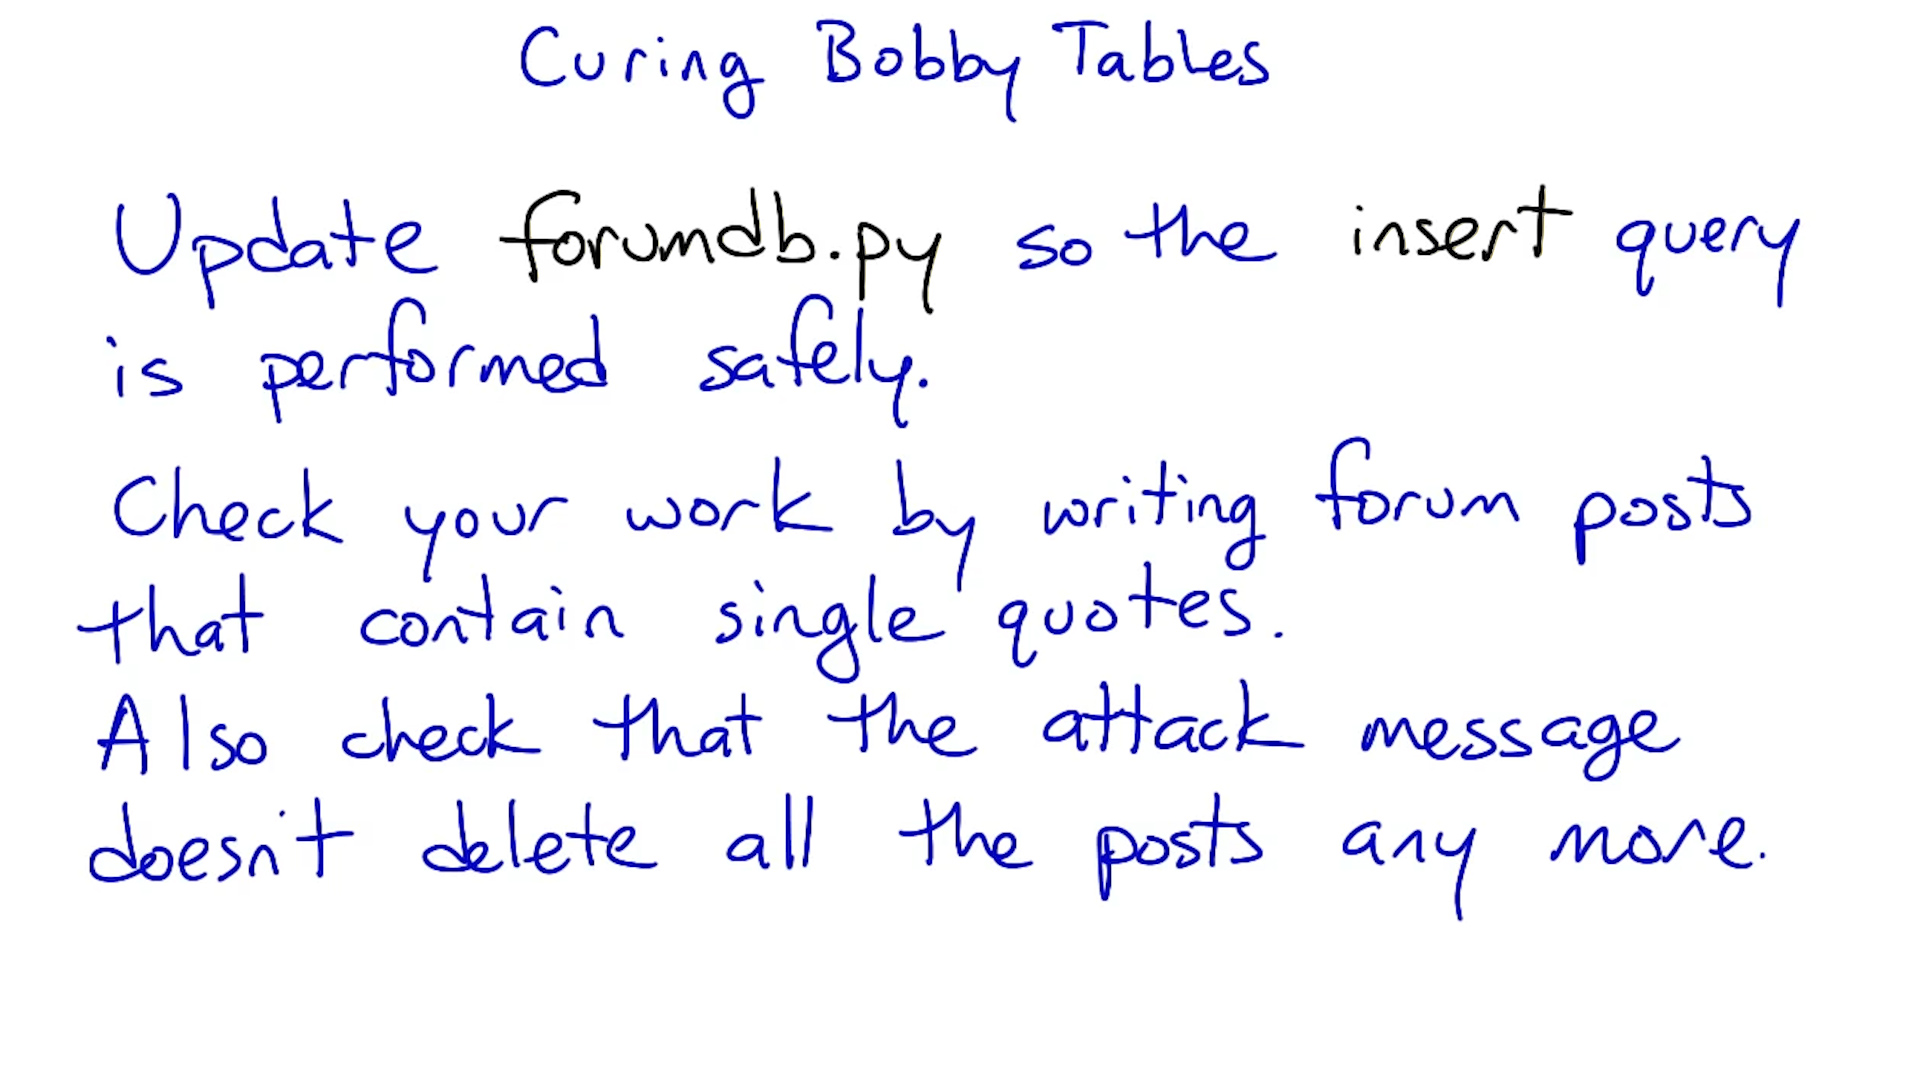 Curing Bobby Tables
Update forumdb.py so the insert query
is performed safely.
Check your work by writing forum posts
that contain single quotes.
Also check that the attack message
doesn't delete all the posts any more.